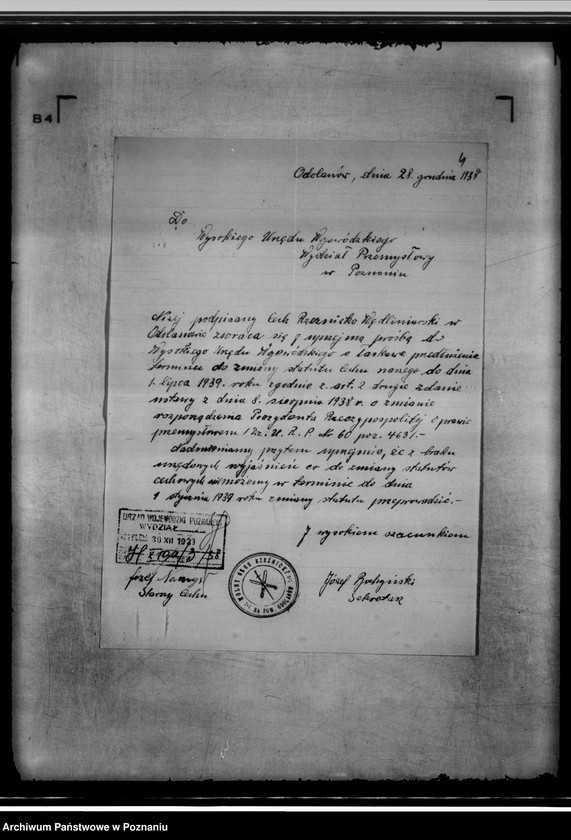 B4
4
Odolanów, dnia 28. grudnia 1938
Do
Wysokiego Urzędu Wojewódzkiego
Wydział Przemysłowy
w Poznaniu
Niżej podpisany Cech Rzeźnicko Wędliniarski w
Odolanowie zwraca się z uprzejmą prośbą do
Wysokiego Urzędu Wojewódzkiego o łaskawe przedłużenie
terminu do zmiany statutu cechu naszego do dnia
1. lipca 1939. roku zgodnie z art. 2 drugie zdanie
ustawy z dnia 8. sierpnia 1938 r. o zmianie
rozporządzenia Prezydenta Rzeczypospolitej o prawie
przemysłowem / Dz. U. R. P. Nr 60 poz. 463/.-
Nadmieniamy przytem uprzejmie, że z braku
urzędowych wyjaśnień co do zmiany statutów
cechowych nie możemy w terminie do dnia
1 stycznia 1939 roku zmiany statutu przeprowadzić.-
Z wysokiem szacunkiem
URZĄD WOJEWÓDZKI POZNAŃSKI
WYDZIAŁ
30 XII 1938
Józef Namysł
Starszy Cechu
WOLNY CECH RZEŹNICKI
NA POW. ODOLANÓW
Józef
Sekretarz
Archiwum Państwowe w Poznaniu